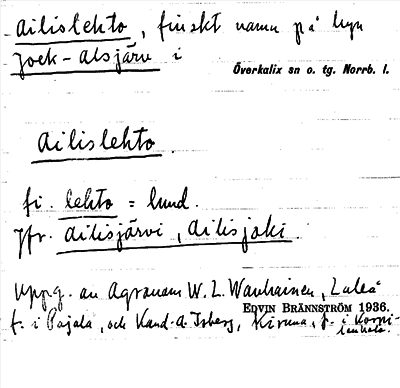 ailislehto, finskt namn på byn
Joek-alsjärv i
Överkalix sn o. tg. Norrb. l.
ailislehto.
fi. lehto = lund.
Jfr. ailisjärvi, ailisjoki.
Uppg. av Agronom W. L. Wanhainen, Luleå
EDVIN BRÄNNSTRÖM 1936.
f. i Pajala, och Kand. A. Isberg, Kiruna, f. i Korpi-
lombolo.